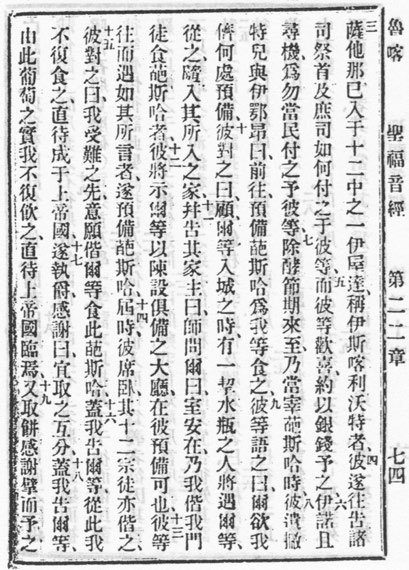 魯喀 聖福音經 第二二章 七四
三薩他那已入于十二中之一伊屋達、稱伊斯喀利沃特者、四彼遂往告諸
司祭首及庶司如何付之于彼等、五而彼等歡喜約以銀錢予之、六伊諾且
尋機爲勿當民付之予彼等、七除酵節期來至乃當宰葩斯哈時、八彼遣撤
特兒與伊鄂昂曰、前往預備葩斯哈爲我等食之、九彼等語之曰、爾欲我
儕何處預備、十彼對之曰、顧爾等入城之時有一挈水瓶之人將遇爾等、
從之隨入其所入之家、十一幷告其家主曰、師問爾曰、室安在乃我偕我門
徒食葩斯哈者、十二彼將示爾等以陳設俱備之大廳、在彼預備可也、十三彼等
往而遇如其所言者、遂預備葩斯哈、十四屆時彼席臥其十二宗徒亦偕之、
十五彼對之曰、我受難之先意願偕爾等食此葩斯哈、十六蓋我告爾等、從此我
不復食之、直待成于上帝國、十七遂執爵感謝曰、宜取之互分、十八蓋我告爾等、
由此葡萄之實我不復飲之、直待上帝國臨焉、十九又取餅感謝擘而予之